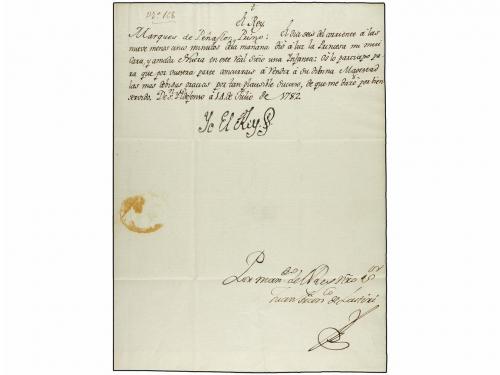 El Rey
Marques de Peñaflor, Primo: El dia seis del corriente á las
nueve menos cinco minutos de la mañana dió á luz la Princesa mi mui
cara, y amada Nuera en este Real Sitio una Infanta: Os lo participo pa
ra que por vuestra parte concurrais á rendir á Su Divina Magestad
las mas debidas gracias por tan plausible suceso, de que me daré por bien
servido. De Sn. Yldefonso á 14 de Julio de 1782.
Yo El Rey
Por mando. del Rey Nro Sor.
Juan Franco. de Lastiri